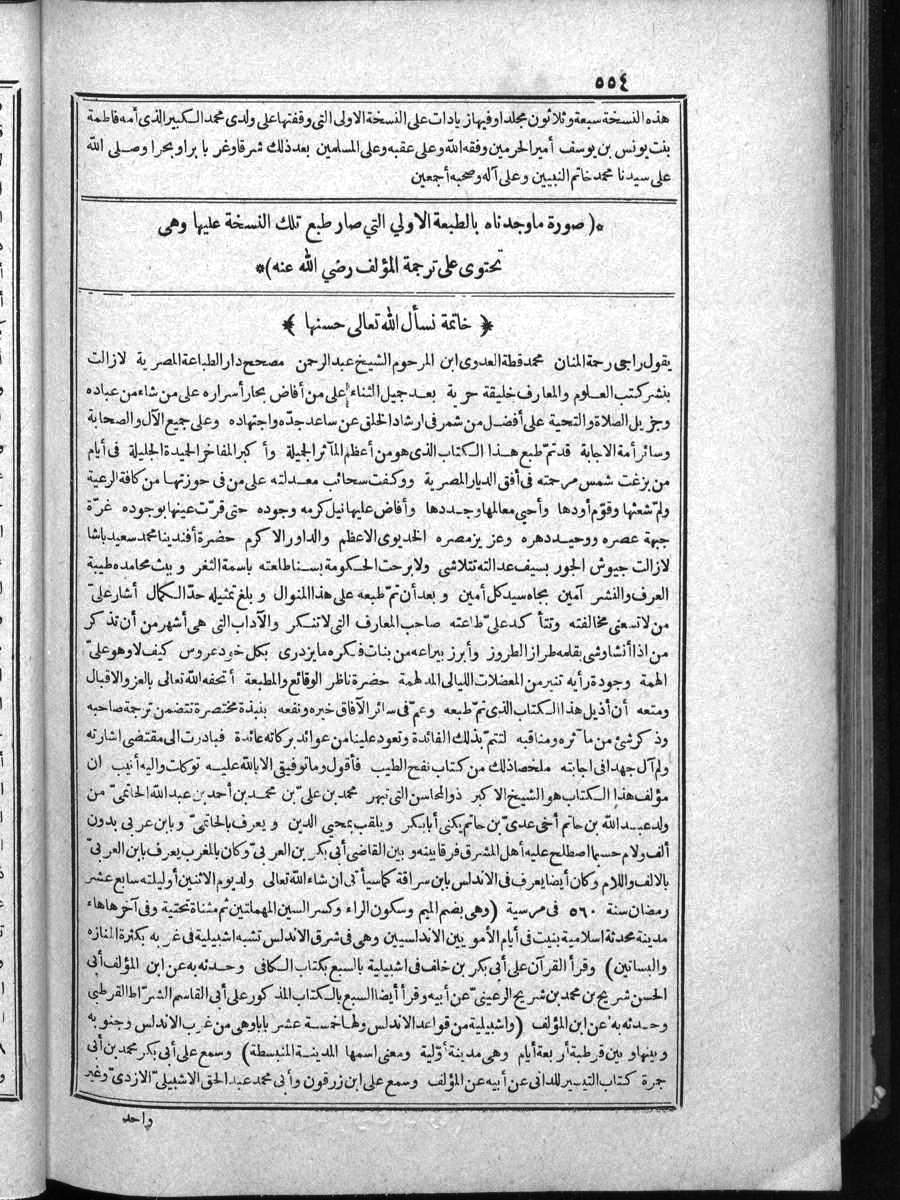 ٥٥٤
هذه النسخة سبعة وثلاثون مجلدا وفيها زيادات على النسخة الاولى التي وقفتها على ولدى محمد الكبير الذى أمه فاطمة
بنت يونس بن يوسف أمير الحرمين وفقه الله وعلى عقبه وعلى المسلمين بعد ذلك شرقا وغربا براوبحرا وصلى الله
على سيدنا محمد خاتم النبيين وعلى آله وصحبه أجمعين
*( صورة ماوجدناه بالطبعة الاولي التي صار طبع تلك النسخة عليها وهى
تحتوى على ترجمة المؤلف رضي الله عنه)*
﴿ خاتمة نسأل الله تعالى حسنها ﴾
يقول راجى رحمة المنان محمد قطة العدوى ابن المرحوم الشيخ عبد الرحمن مصحح دار الطباعة المصرية لازالت
بنشر كتب العلوم والمعارف خليقة حرية بعد جميل الثناء على من أفاض بحار أسراره على من شاء من عباده
وجزيل الصلاة والتحية على أفضل من شمر فى ارشاد الخلق عن ساعد جدّه واجتهاده وعلى جميع الآل والصحابة
وسائر أمة الاجابة قد تمّ طبع هذا الكتاب الذى هو من أعظم المآثر الجميلة وأكبر المفاخر الجيدة الجليلة فى أيام
من بزغت شمس مرحمته فى أفق الديار المصرية ووكفت سحائب معدلته على من فى حوزتها من كافة الرعية
ولمّ شعثها وقوّم أودها وأحيى معالمها وجددها وأفاض عليها نيل كرمه وجوده حتى قرّت عينها بوجوده غرّة
جبهة عصره ووحيد دهره وعزيز مصره الخديوى الاعظم والداور الاكرم حضرة أفندينا محمد سعيد باشا
لازالت جيوش الجور بسيف عدالته تتلاشى ولابرحت الحكومة بسنا طلعته باسمة الثغر وبث محامده طيبة
العرف والنشر آمين بجاه سيد كل أمين وبعد أن تمّ طبعه على هذا المنوال وبلغ تمثيله حدّ الكمال أشار علىّ
من لاتسعنى مخالفته وتتأكد علىّ طاعته صاحب المعارف التى لاتنكر والآداب التى هى أشهر من أن تذكر
من اذا أنشا وشى بقلمه طراز الطروز وأبرز بيراعه من بنات فكره مايزدرى بكل خود عروس كيف لا وهو علىّ
الهمة وجودة رأيه تنير من المعضلات الليالى المدلهمة حضرة ناظر الوقائع والمطبعة أتحفه الله تعالى بالعز والاقبال
ومتعه أن أذيل هذا الكتاب الذى تمّ طبعه وعمّ فى سائر الآفاق خيره ونفعه بنبذة مختصرة تتضمن ترجمة صاحبه
وذكر شئ من مآثره ومناقبه لتتمّ بذلك الفائدة وتعود علينا من عوائد بركاته عائدة فبادرت الى مقتضى اشارته
ولم آل جهدا فى اجابته ملخصا ذلك من كتاب نفح الطيب فأقول وماتوفيقى الابالله عليه توكلت واليه أنيب ان
مؤلف هذا الكتاب هو الشيخ الاكبر ذو المحاسن التى تبهر محمد بن علىّ بن محمد بن أحمد بن عبد الله الحاتمىّ من
ولد عبد الله بن حاتم أخى عدىّ بن حاتم يكنى أبا بكر ويلقب بمحيى الدين ويعرف بالحاتمىّ وبابن عربى بدون
ألف ولام حسبما اصطلح عليه أهل المشرق فرقا بينه وبين القاضى أبى بكر بن العربىّ وكان بالمغرب يعرف بابن العربىّ
بالالف واللام وكان أيضا يعرف فى الاندلس بابن سراقة كما سيأتى ان شاء الله تعالى ولد يوم الاثنين أوليلته سابع عشر
رمضان سنة ٥٦٠ فى مرسية (وهى بضم الميم وسكون الراء وكسر السين المهملتين ثم مثناة تحتية وفى آخرها هاء
مدينة محدثة اسلامية بنيت فى أيام الأمويين الاندلسيين وهى فى شرق الاندلس تشبه اشبيلية فى غربه بكثرة المنازه
والبساتين) وقرأ القرآن على أبى بكر بن خلف فى اشبيلية بالسبع بكتاب الكافى وحدثه به عن ابن المؤلف أبى
الحسن شريح بن محمد بن شريح الرعينىّ عن أبيه وقرأ أيضا السبع بالكتاب المذكور على أبى القاسم الشرّاط القرطبى
وحدثه به عن ابن المؤلف (واشبيلية من قواعد الاندلس ولها خمسة عشر بابا وهى من غرب الاندلس وجنوبه
وبينها وبين قرطبة أربعة أيام وهى مدينة أوّلية ومعنى اسمها المدينة المنبسطة) وسمع على أبى بكر محمد بن أبى
جمرة كتاب التيسير للدانى عن أبيه عن المؤلف وسمع على ابن زرقون وأبى محمد عبد الحق الاشبيلىّ الازدىّ وغير
واحد